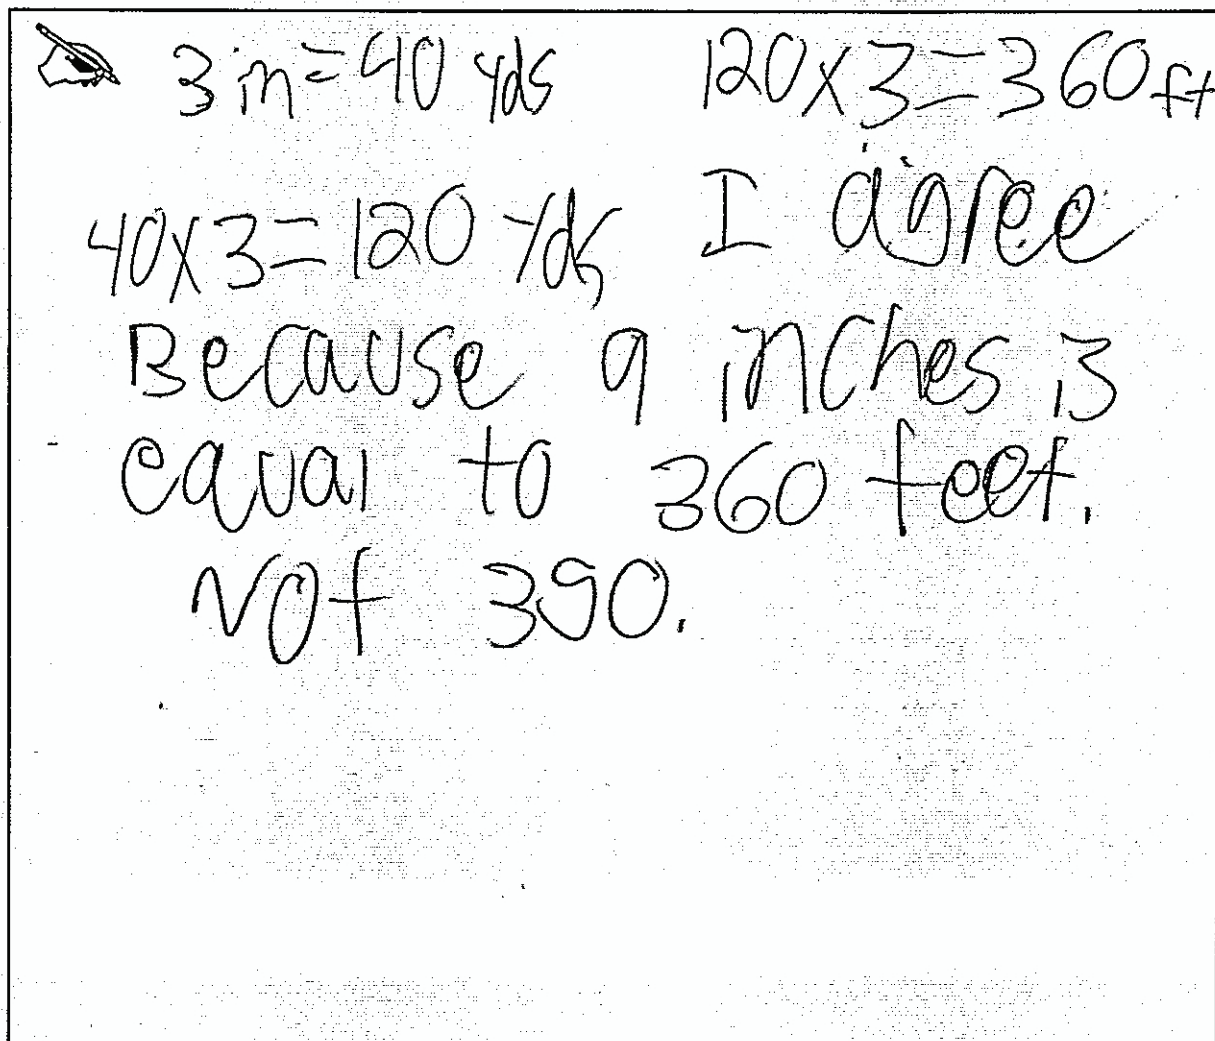 3 in = 40 yds 120 x 3 = 360 ft
40 x 3 = 120 yds I agree
Because 9 inches is
equal to 360 feet.
Not 390.